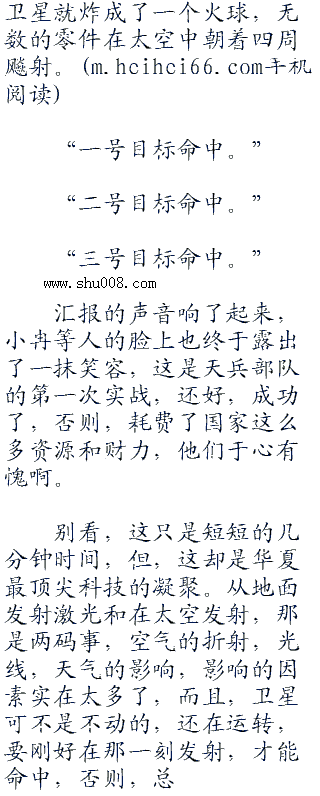 卫星就炸成了一个火球，无
数的零件在太空中朝着四周
飚射。(m.hcihci66.com手机
阅读)
“一号目标命中。”
“二号目标命中。”
“三号目标命中。”
www.shu008.com
汇报的声音响了起来，
小冉等人的脸上也终于露出
了一抹笑容，这是天兵部队
的第一次实战，还好，成功
了，否则，耗费了国家这么
多资源和财力，他们于心有
愧啊。
别看，这只是短短的几
分钟时间，但，这却是华夏
最顶尖科技的凝聚。从地面
发射激光和在太空发射，那
是两码事，空气的折射，光
线，天气的影响，影响的因
素实在太多了，而且，卫星
可不是不动的，还在运转，
要刚好在那一刻发射，才能
命中，否则，总